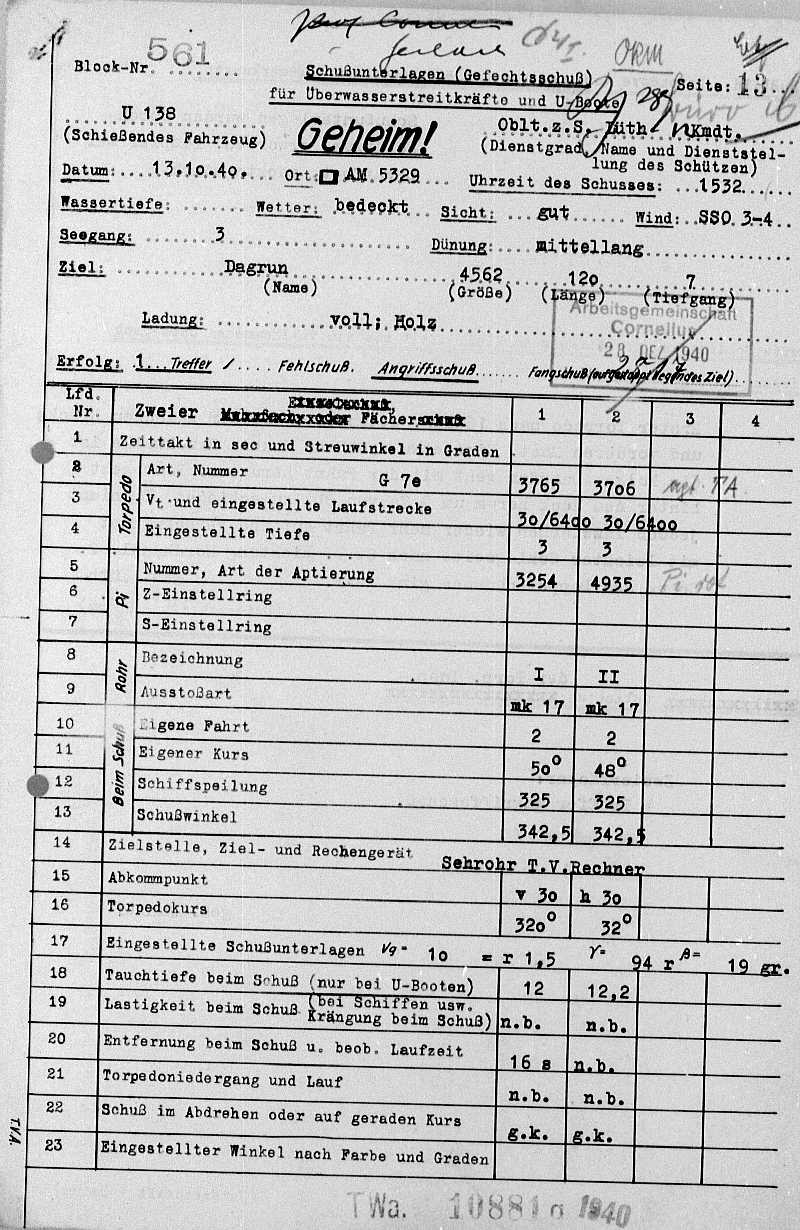 561
OKM
Block-Nr.
Schußunterlagen (Gefechtsschuß)
Seite: 13
für Überwasserstreitkräfte und U-Boote
U 138
Geheim!
Oblt.z.S. Lüth Kmdt.
(Schießendes Fahrzeug)
(Dienstgrad, Name und Dienststel-
lung des Schützen)
Datum: 13.10.40. Ort: AM 5329 Uhrzeit des Schusses: 1532
Wassertiefe: Wetter: bedeckt Sicht: gut Wind: SSO 3-4
Seegang: 3 Dünung: mittellang
Ziel: Dagrun 4562 120 7
(Name) (Größe) (Länge) (Tiefgang)
Arbeitsgemeinschaft
Cornelius
28 DEZ 1940
Ladung: voll; Holz
Erfolg: 1 Treffer / Fehlschuß. Angriffsschuß Fangschuß (aufgestoppt liegendes Ziel)
Lfd. Nr. Zweier Fächer 1 2 3 4
1 Zeittakt in sec und Streuwinkel in Graden
Torpedo
2 Art, Nummer G 7e 3765 3706
3 Vt und eingestellte Laufstrecke 30/6400 30/6400
4 Eingestellte Tiefe 3 3
Pi
5 Nummer, Art der Aptierung 3254 4935 Pi rot
6 Z-Einstellring
7 S-Einstellring
Beim Schuß Rohr
8 Bezeichnung I II
9 Ausstoßart mk 17 mk 17
10 Eigene Fahrt 2 2
11 Eigener Kurs 50° 48°
12 Schiffspeilung 325 325
13 Schußwinkel 342,5 342,5
14 Zielstelle, Ziel- und Rechengerät Sehrohr T.V.Rechner
15 Abkommpunkt v 30 h 30
16 Torpedokurs 320° 32°
17 Eingestellte Schußunterlagen Vg= 10 = r 1,5 γ= 94 r β= 19 gr.
18 Tauchtiefe beim Schuß (nur bei U-Booten) 12 12,2
19 Lastigkeit beim Schuß (bei Schiffen usw. Krängung beim Schuß) n.b. n.b.
20 Entfernung beim Schuß u. beob. Laufzeit 16 s n.b.
21 Torpedoniedergang und Lauf n.b. n.b.
22 Schuß im Abdrehen oder auf geraden Kurs g.k. g.k.
23 Eingestellter Winkel nach Farbe und Graden
T.V.A.
TWa. 10881 g 1940